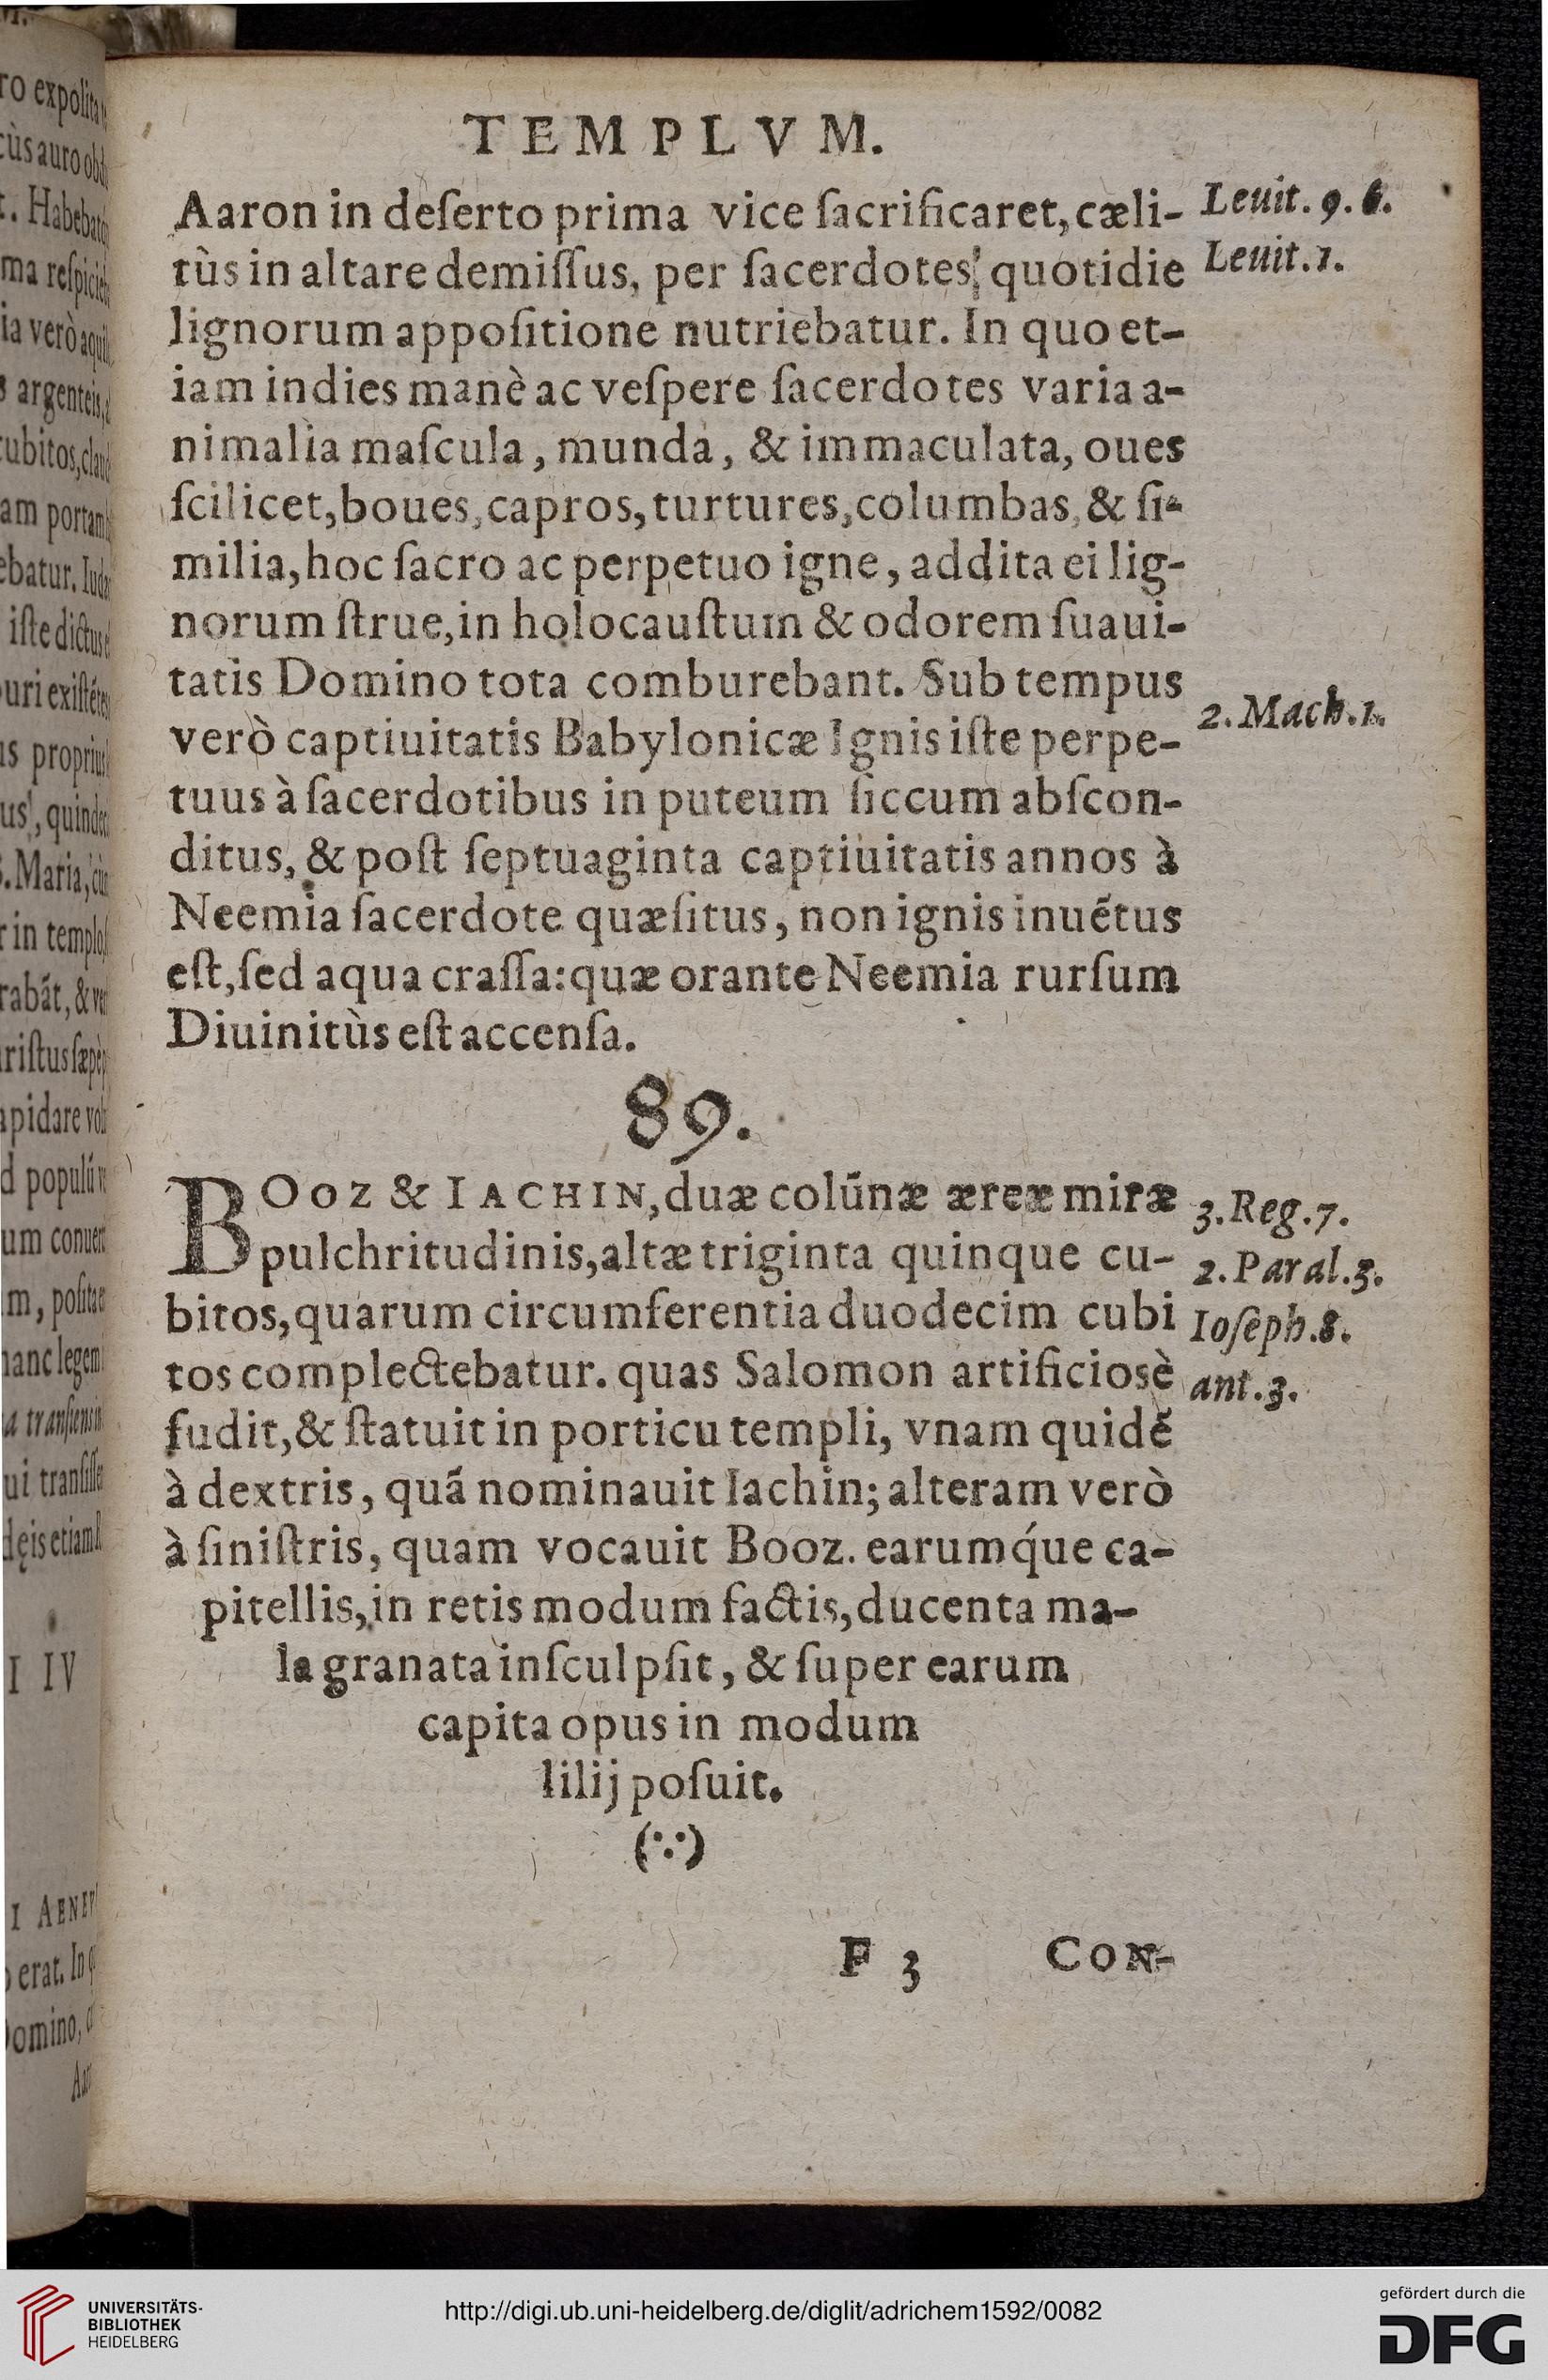 TEMPLVM.
Aaron in deſerto prima vice ſacrificaret, cæli-
tùs in altare demiſſus, per ſacerdotes quotidie
lignorum appoſitione nutriebatur. In quo et-
iam indies manè ac veſpere ſacerdotes varia a-
nimalia maſcula, munda, & immaculata, oues
ſcilicet, boues, capros, turtures, columbas, & ſi-
milia, hoc ſacro ac perpetuo igne, addita ei lig-
norum ſtrue, in holocauſtum & odorem ſuaui-
tatis Domino tota comburebant. Sub tempus
verò captiuitatis Babylonicæ Ignis iſte perpe-
tuus à ſacerdotibus in puteum ſiccum abſcon-
ditus, & poſt ſeptuaginta captiuitatis annos à
Neemia ſacerdote quæſitus, non ignis inuẽtus
eſt, ſed aqua craſſa: quæ orante Neemia rurſum
Diuinitùs eſt accenſa.
Leuit. 9. 6.
Leuit. 1.
2. Mach. 1.
89.
BOOZ & IACHIN, duæ colũnæ æreæ miræ
pulchritudinis, altæ triginta quinque cu-
bitos, quarum circumferentia duodecim cubi
tos complectebatur. quas Salomon artificiosè
fudit, & ſtatuit in porticu templi, vnam quidẽ
à dextris, quã nominauit Iachin; alteram verò
à ſiniſtris, quam vocauit Booz. earumq́ue ca-
pitellis, in retis modum factis, ducenta ma-
la granata inſculpſit, & ſuper earum
capita opus in modum
lilij poſuit.
(∵)
3. Reg. 7.
2. Paral. 3.
Ioſeph. 8.
ant. 3.
F 3 CON-
UNIVERSITÄTS-
BIBLIOTHEK
HEIDELBERG
http://digi.ub.uni-heidelberg.de/diglit/adrichem1592/0082
gefördert durch die
DFG